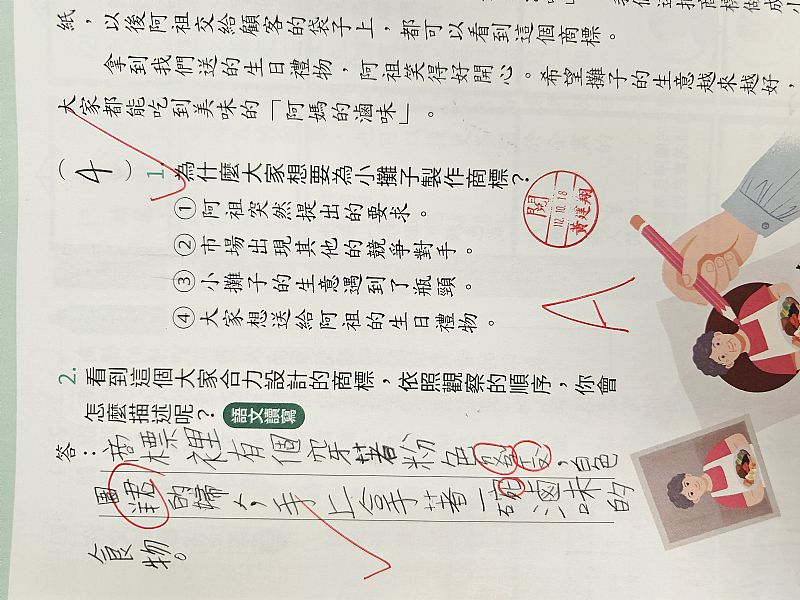 紙，以後阿祖交給顧客的袋子上，都可以看到這個商標。
拿到我們送的生日禮物，阿祖笑得好開心。希望攤子的生意越來越好，
大家都能吃到美味的「阿媽的滷味」。
(4) 1. 為什麼大家想要為小攤子製作商標？
① 阿祖突然提出的要求。
② 市場出現其他的競爭對手。
③ 小攤子的生意遇到了瓶頸。
④ 大家想送給阿祖的生日禮物。
閱
12.10.18
A
2. 看到這個大家合力設計的商標，依照觀察的順序，你會
怎麼描述呢？ 語文讀寫
答：商標裡有個穿著粉色，白色
圍裙的婦人，手上拿著一碗滷味的
食物。